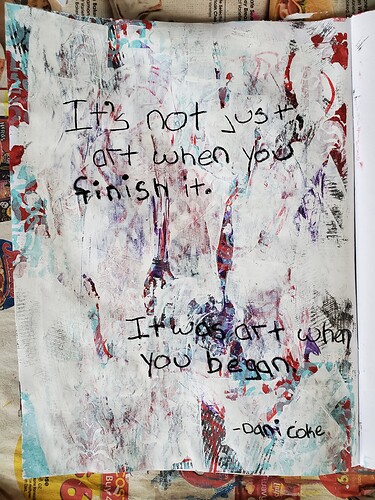 It's not just
art when you
finish it.
It was art when
you began
-Dani Coke